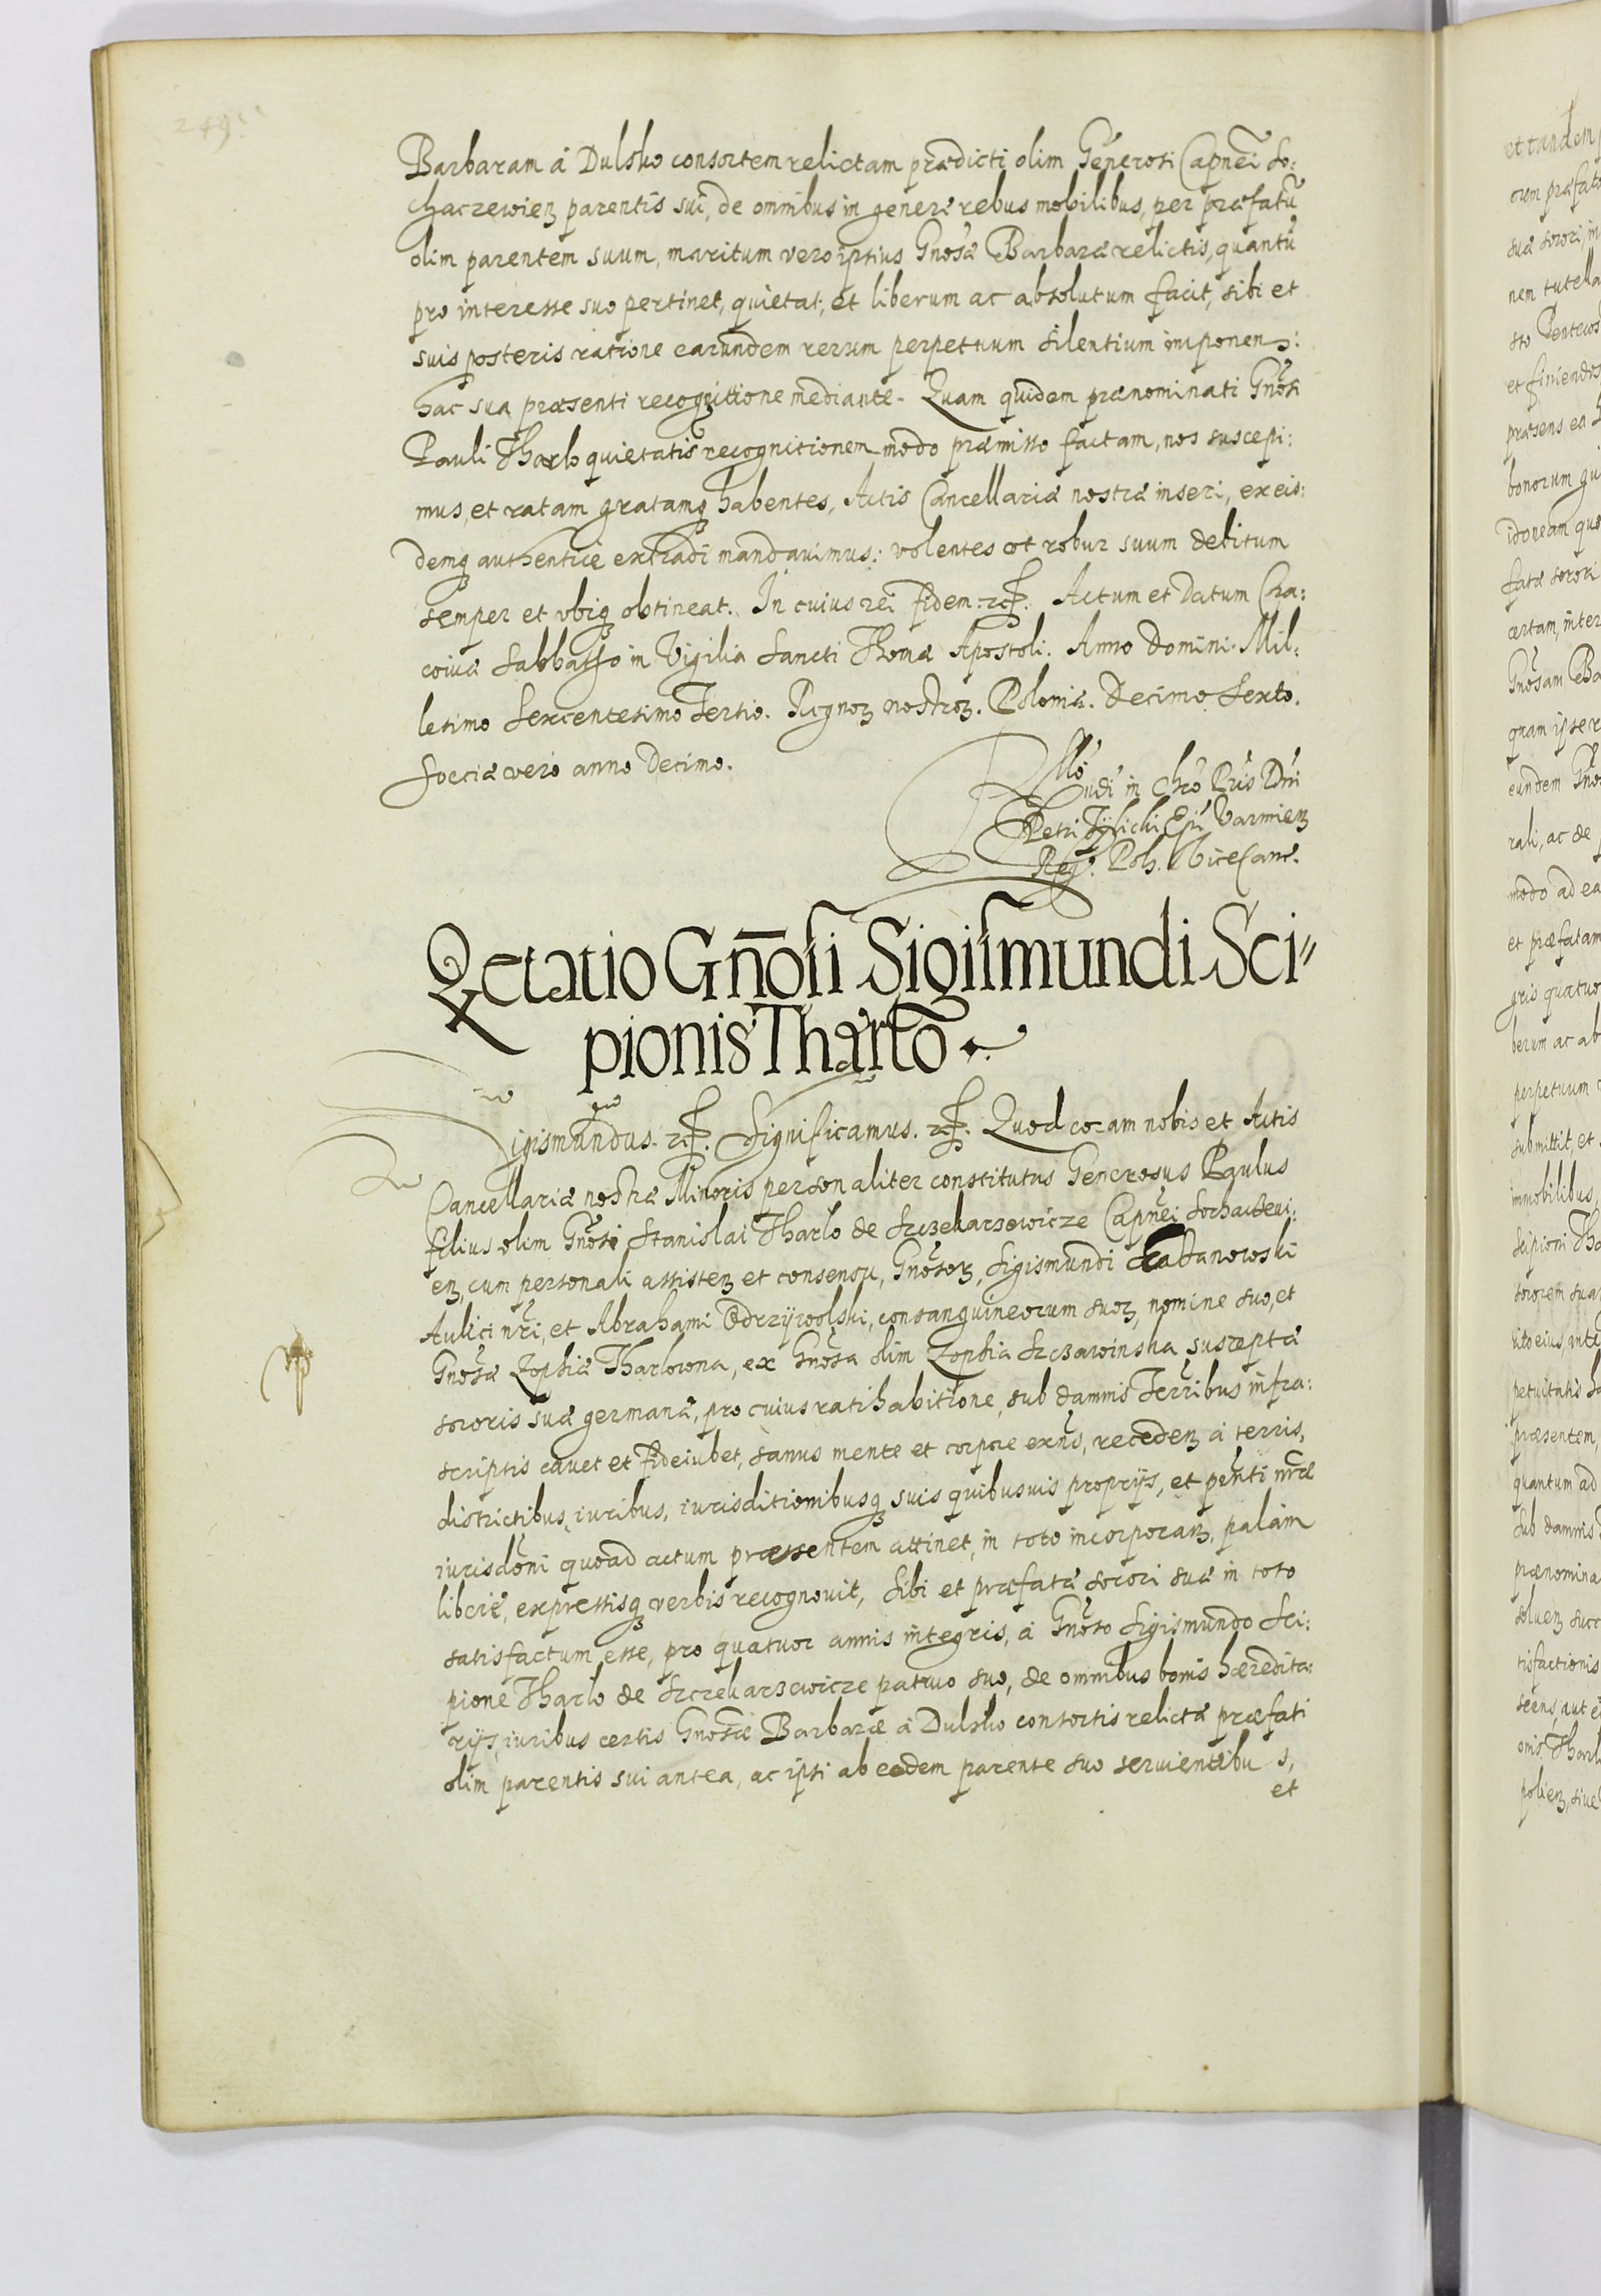 Barbaram á Dulsko consortem relictam prædicti olim Generosi Capnei So:
chaczewien parentis sui, de omnibus in genere rebus mobilibus, per præfatū
olim parentem suum, maritum vero ipsius Gnosæ Barbaræ relictis, quantū
pro interesse suo pertinet, quietat, et liberum ac absolutum facit, sibi et
suis posteris ratione earundem rerum perpetuum silentium imponens:
hac sua præsenti recognitione mediante. Quam quidem prænominati Gnosi
Pauli Tharlo quietatis recognitionem modo præmisso factam, nos suscepi:
mus, et ratam gratamq habentes, Actis Cancellariæ nostræ inseri, ex eis:
demq authenticè extradi mandavimus: volentes ot robur suum debitum
semper et vbiq obtineat. In cuius rei fidem. etc. Actum et Datum Cra:
coviæ Sabbatho in Vigilia Sancti Thomæ Apostoli. Anno Domini. Mil:
lesimo Sexcentesimo Tertio. Regnoꝝ nostroꝝ. Poloniæ. Decimo Sexto.
Soeciæ vero anno Decimo.
Rndi in Chro Pris Dni
Petri Tÿlicki Epi Varmien
Regⁱ. Pol. ViceCanc.
Qetatio Gn̄osi Sigismundi Sci-
pionis Tharło.
Sigismundus. etc. Significamus. etc. Quod coram nobis et Actis
Cancellariæ nostræ Minoris personaliter constitutus Generosus Paulus
filius olim Gnosi Stanislai Tharlo de Sczekarzowicze Capnei Sochaczevi:
en, cum personali assisten et consensu, Gnosoꝝ, Sigismundi Kazanowski
Aulici nri, et Abrahami Odrzÿwolski, consanguineorum suoꝝ, nomine suo, et
Gnosæ Zophiæ Tharlowna, ex Gnosa olim Zophia Sczawinska susceptæ
sororis suæ germanæ, pro cuius ratihabitione, sub damnis Terribus infra:
scriptis cavet et fideiubet, sanus mente et corpore exns, receden á terris,
districtibus, iuribus, iurisditionibusq suis quibusuis proprijs, et pnti nræ
iurisdoni quoad actum præsentem attinet, in toto incorporan, palàm
liberè, expressisq verbis recognovit, Sibi et præfatæ sorori suæ in toto
satisfactum esse, pro quatuor annis integris, á Gnoso Sigismundo Sci:
pione Tharlo de Sczekarzewicze patruo suo, de omnibus bonis hæredita:
rijs, iuribus certis Gnosæ Barbaræ á Dulsko consortis relictæ præfati
olim parentis sui antea, ac ipsi ab eodem parente suo servientibus,
et